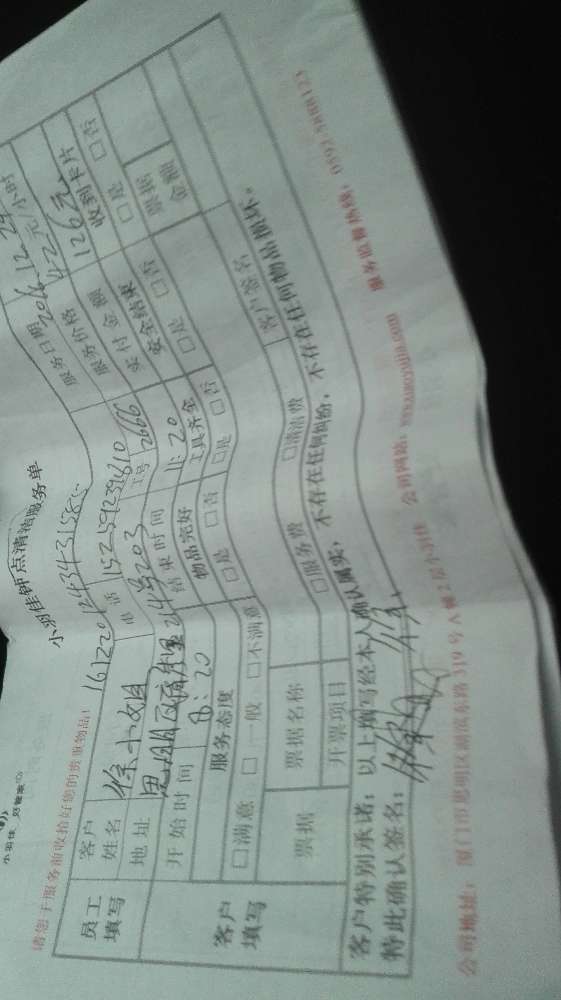 小羽佳，好管家
小羽佳钟点清洁服务单
请您于服务前收拾好您的贵重物品！
员工填写
客户姓名 徐小姐 电话 15259239610 服务日期 2016.12.24
地址 思明区 203 工号 2666 服务价格 42元/小时
开始时间 8：20 结束时间 11：20 实付金额 126元
客户填写
服务态度 物品完好 工具齐全 安全结束 收到卡片
□满意 □一般 □不满意 □是 □否 □是 □否 □是 □否 □是 □否
票据 票据名称 □服务费 □清洁费 客户签名 票据金额
开票项目
客户特别承诺：以上填写经本人确认属实，不存在任何纠纷，不存在任何物品损坏。
特此确认签名：
公司地址：厦门市思明区湖滨东路319号A幢2层小羽佳 公司网站：www.xmxyj.com 服务监督热线：0592-5888123